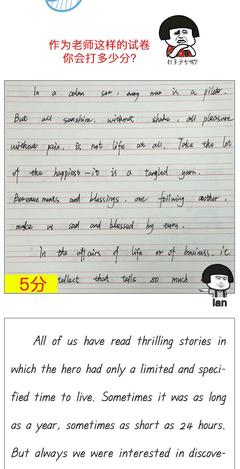 作为老师这样的试卷
你会打多少分?
打多少分呢?
In a calm sea, every man is a pilot.
But all sunshine without shade, all pleasure
without pain, is not life at all. Take the lot
of the happiest - it is a tangled yarn.
Bereavements and blessings, one following another,
make us sad and blessed by turns.
In the affairs of life or of business, it
5分
tellect that tells so much
lan
All of us have read thrilling stories in
which the hero had only a limited and speci-
fied time to live. Sometimes it was as long
as a year, sometimes as short as 24 hours.
But always we were interested in discove-